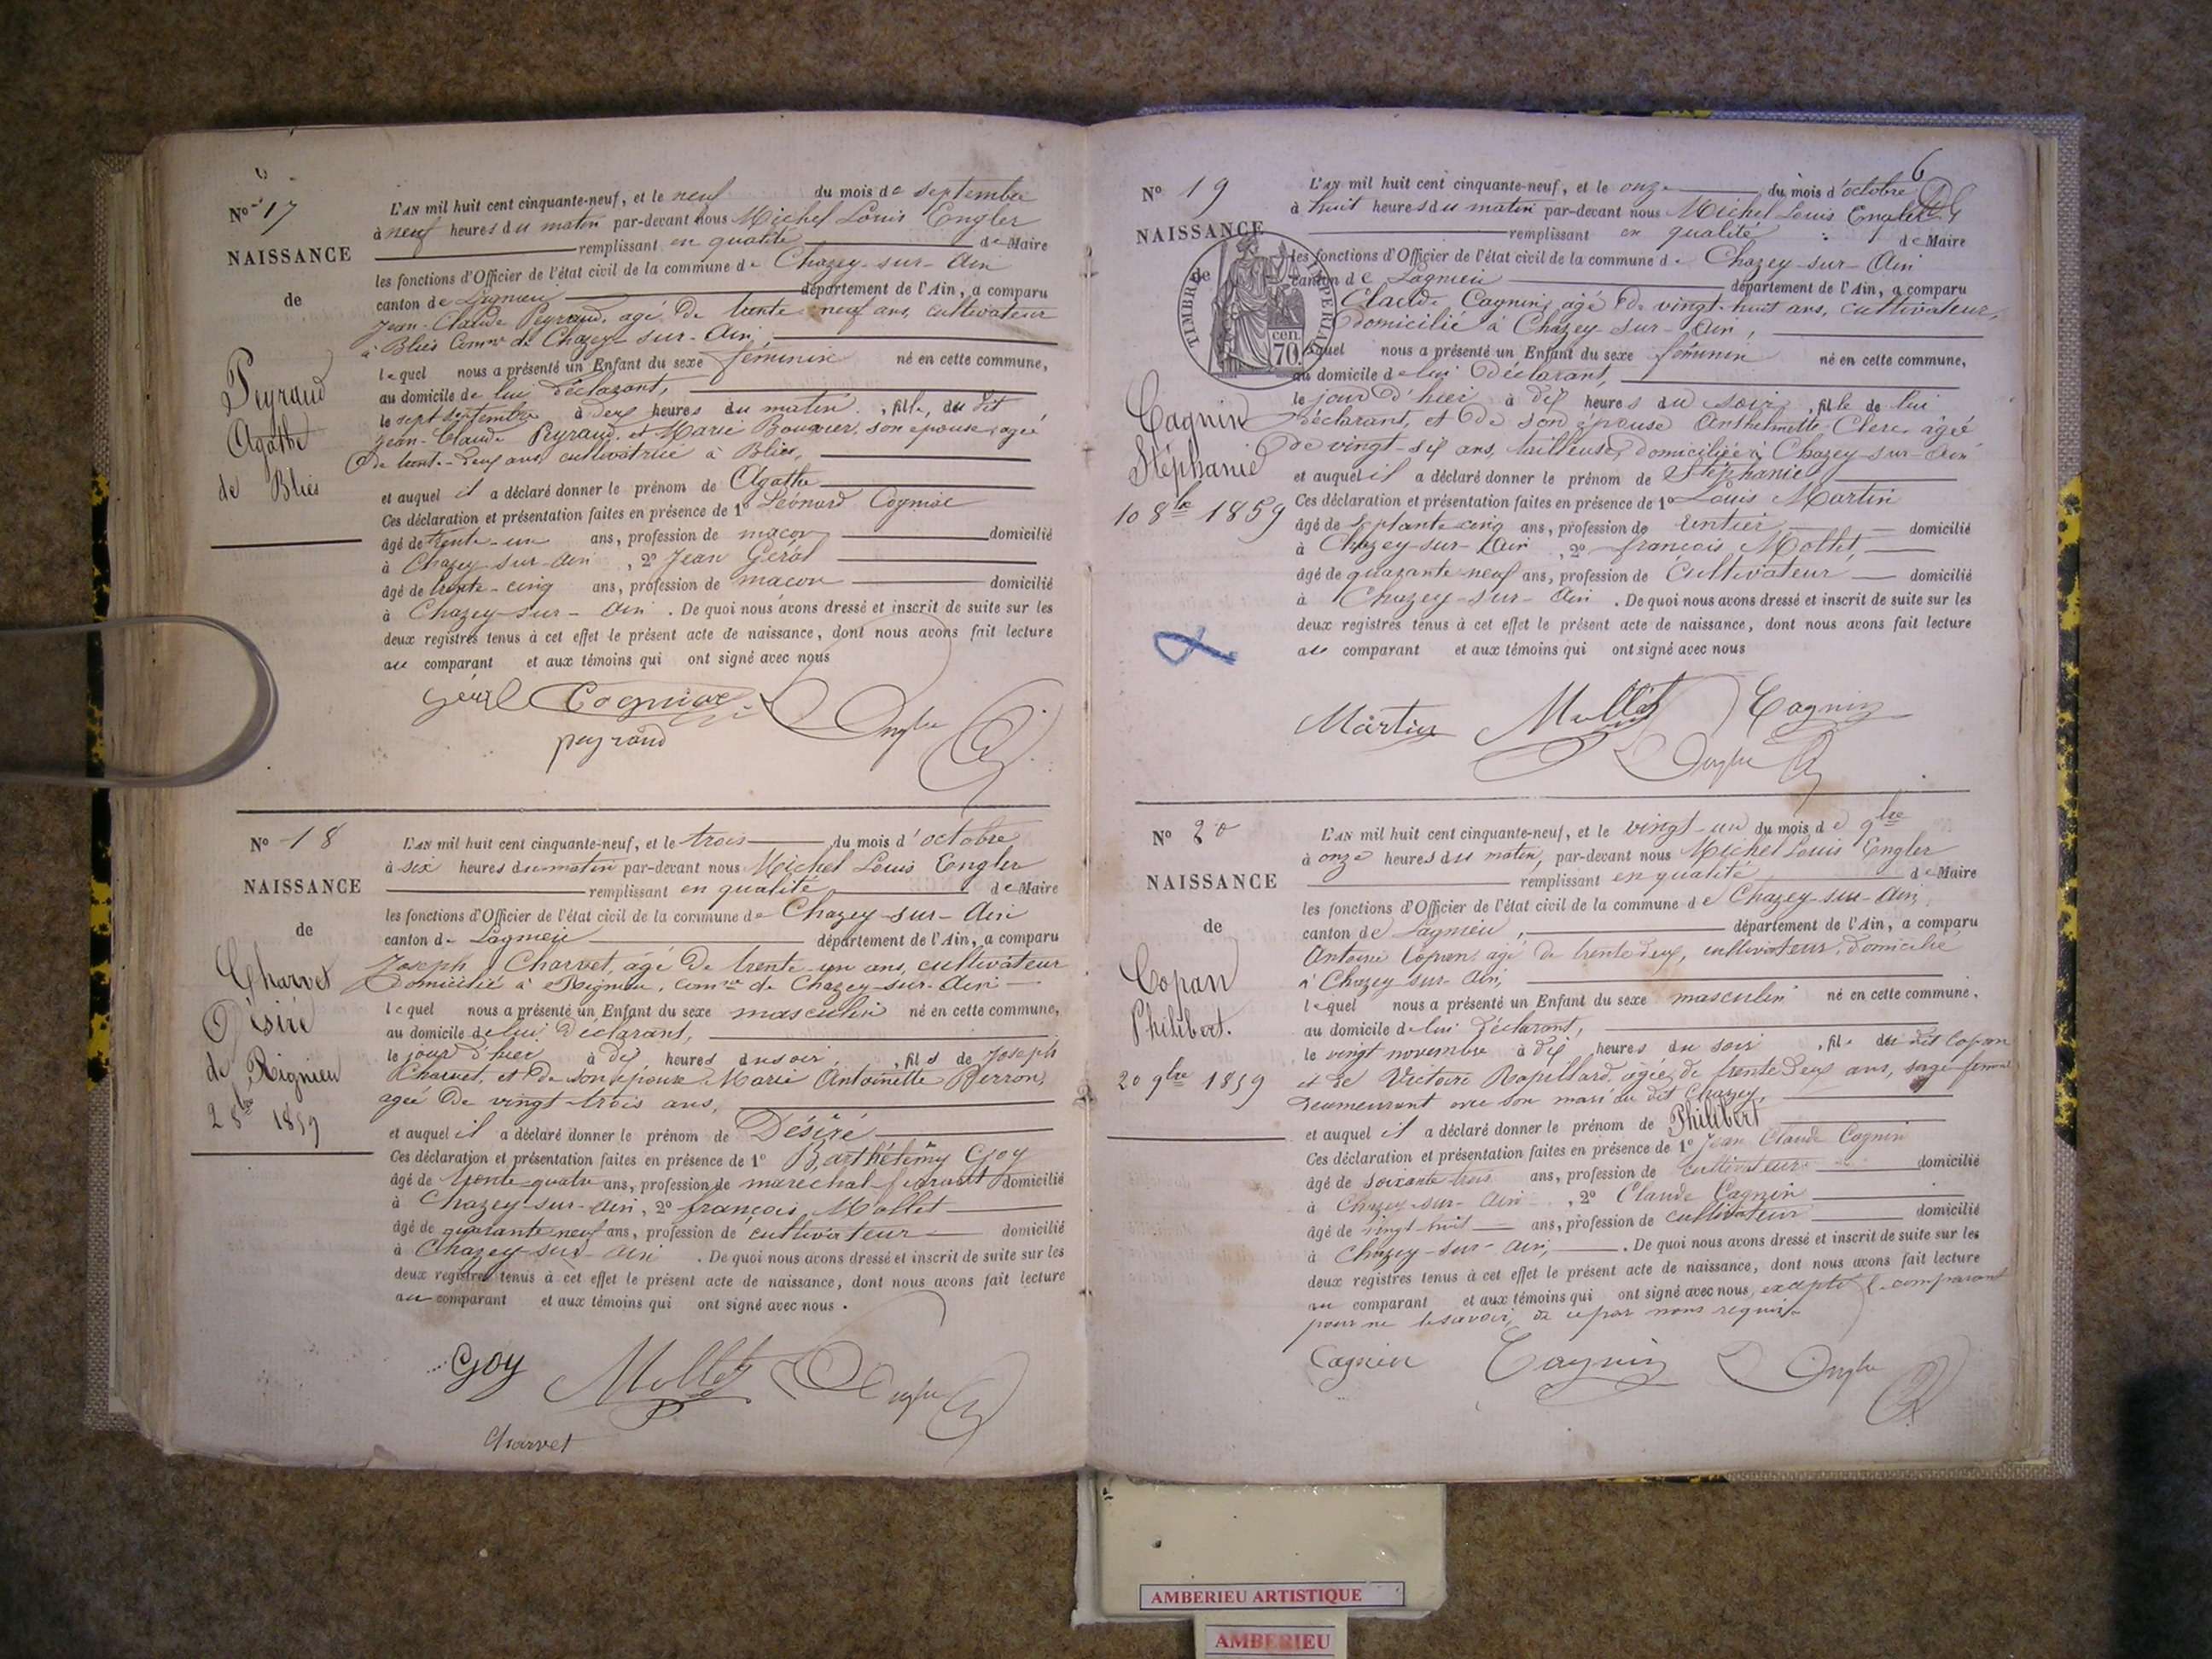 N° 17
NAISSANCE
de
Peyraud
Agathe
de Bliès
L'AN mil huit cent cinquante-neuf, et le neuf du mois de septembre
à neuf heures du matin par-devant nous Michel Louis Engler
remplissant en qualité de Maire
les fonctions d'Officier de l'état civil de la commune de Chazey-sur-Ain
canton de Lagnieu département de l'Ain, a comparu
Jean-Claude Peyraud, agé de trente neuf ans, cultivateur
à Bliès Comne de Chazey-sur-Ain,
lequel nous a présenté un Enfant du sexe féminin né en cette commune,
au domicile de lui déclarant,
le sept septembre à deux heures du matin, fille, du dit
Jean-Claude Peyraud, et Marie Bouvier, son épouse, agée
de trente-deux ans, cultivatrice à Bliès,
et auquel il a déclaré donner le prénom de Agathe
Ces déclaration et présentation faites en présence de 1° Léonard Cogniac
âgé de trente-un ans, profession de maçon domicilié
à Chazey-sur-Ain, 2° Jean Géral
âgé de trente-cinq ans, profession de maçon domicilié
à Chazey-sur-Ain. De quoi nous avons dressé et inscrit de suite sur les
deux registres tenus à cet effet le présent acte de naissance, dont nous avons fait lecture
au comparant et aux témoins qui ont signé avec nous
Géral Cogniac Engler
peyraud
N° 18
NAISSANCE
de
Charvet
Désiré
de Rignieu
2 8bre 1859
L'AN mil huit cent cinquante-neuf, et le trois du mois d'octobre
à six heures du matin par-devant nous Michel Louis Engler
remplissant en qualité de Maire
les fonctions d'Officier de l'état civil de la commune de Chazey-sur-Ain
canton de Lagnieu département de l'Ain, a comparu
Joseph Charvet, âgé de trente-un ans, cultivateur
Domicilié à Rignieu, comne de Chazey-sur-Ain
lequel nous a présenté un Enfant du sexe masculin né en cette commune,
au domicile de lui déclarant,
le jour d'hier à dix heures du soir, fils de Joseph
Charvet, et de son épouse Marie Antoinette Perron,
agée de vingt-trois ans,
et auquel il a déclaré donner le prénom de Désiré
Ces déclaration et présentation faites en présence de 1° Barthélémy Goy
âgé de trente-quatre ans, profession de maréchal-ferrant domicilié
à Chazey-sur-Ain, 2° françois Mollet
âgé de quarante-neuf ans, profession de cultivateur domicilié
à Chazey-sur-Ain. De quoi nous avons dressé et inscrit de suite sur les
deux registres tenus à cet effet le présent acte de naissance, dont nous avons fait lecture
au comparant et aux témoins qui ont signé avec nous.
Goy Mollet Engler
Charvet
6
N° 19
NAISSANCE
de
TIMBRE IMPERIAL
70 cen.
Cagnin
Stéphanie
10 8bre 1859
L'AN mil huit cent cinquante-neuf, et le onze du mois d'octobre
à huit heures du matin par-devant nous Michel Louis Engler
remplissant en qualité de Maire
les fonctions d'Officier de l'état civil de la commune de Chazey-sur-Ain
canton de Lagnieu département de l'Ain, a comparu
Claude Cagnin, agé de vingt-huit ans, cultivateur,
domicilié à Chazey-sur-Ain,
lequel nous a présenté un Enfant du sexe féminin né en cette commune,
au domicile de lui déclarant,
le jour d'hier à dix heures du soir, fille de lui
déclarant, et de son épouse Anthelmette Clerc âgée
de vingt-six ans, tailleuse, domiciliée à Chazey-sur-Ain
et auquel il a déclaré donner le prénom de Stéphanie
Ces déclaration et présentation faites en présence de 1° Louis Martin
âgé de septante cinq ans, profession de rentier domicilié
à Chazey-sur-Ain, 2° françois Mollet,
âgé de quarante-neuf ans, profession de Cultivateur domicilié
à Chazey-sur-Ain. De quoi nous avons dressé et inscrit de suite sur les
deux registres tenus à cet effet le présent acte de naissance, dont nous avons fait lecture
au comparant et aux témoins qui ont signé avec nous
Martin Mollet Cagnin
Engler
N° 20
NAISSANCE
de
Copan
Philibert.
20 9bre 1859
L'AN mil huit cent cinquante-neuf, et le vingt-un du mois de 9bre
à onze heures du matin, par-devant nous Michel Louis Engler
remplissant en qualité de Maire
les fonctions d'Officier de l'état civil de la commune de Chazey-sur-Ain,
canton de Lagnieu, département de l'Ain, a comparu
Antoine Copan, agé de trente deux, cultivateur, domicilié
à Chazey-sur-Ain,
lequel nous a présenté un Enfant du sexe masculin né en cette commune,
au domicile de lui déclarant,
le vingt novembre à dix heures du soir, fils du dit Copan
et de Victoire Rapillard, agée de trente deux ans, sage-femme
demeurant avec son mari au dit Chazey,
et auquel il a déclaré donner le prénom de Philibert
Ces déclaration et présentation faites en présence de 1° Jean Claude Cagnin
âgé de soixante trois ans, profession de cultivateur domicilié
à Chazey-sur-Ain, 2° Claude Cagnin
âgé de vingt-huit ans, profession de cultivateur domicilié
à Chazey-sur-Ain,. De quoi nous avons dressé et inscrit de suite sur les
deux registres tenus à cet effet le présent acte de naissance, dont nous avons fait lecture
au comparant et aux témoins qui ont signé avec nous, excepté le comparant
pour ne le savoir, de ce par nous requis.
Cagnin Cagnin Engler
AMBERIEU ARTISTIQUE
AMBERIEU